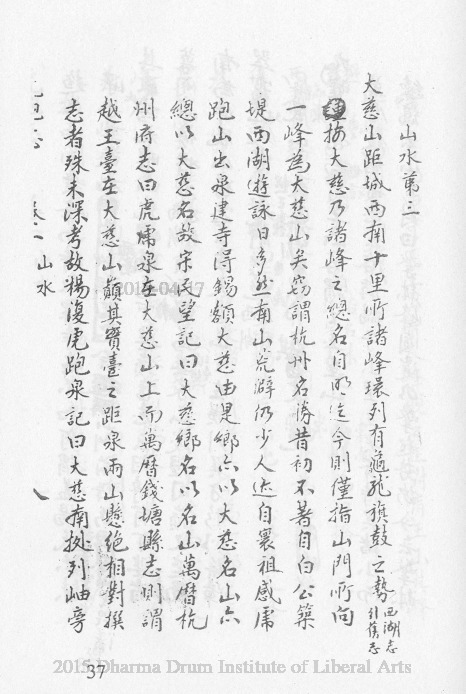 山水第三
大慈山距城西南十里所諸峰環列有龜龍旗鼓之勢西湖志引舊志
按大慈乃諸峰之總名自明迄今則僅指山門所向
一峰為大慈山矣竊謂杭州名勝昔初不著自白公築
堤西湖遊詠日多然南山荒僻仍少人迹自寰祖感虎
跑山出泉建寺得錫額大慈由是鄉亦以大慈名山亦
總以大慈名故宋民望記曰大慈鄉名以名山萬曆杭
州府志曰虎跑泉在大慈山上而萬曆錢塘縣志則謂
越王臺在大慈山巔其實臺之距泉兩山懸絕相對撰
志者殊未深考故楊復虎跑泉記曰大慈南挹列岫旁
山水
八
2015-04-17
37
2015 Dharma Drum Institute of Liberal Arts